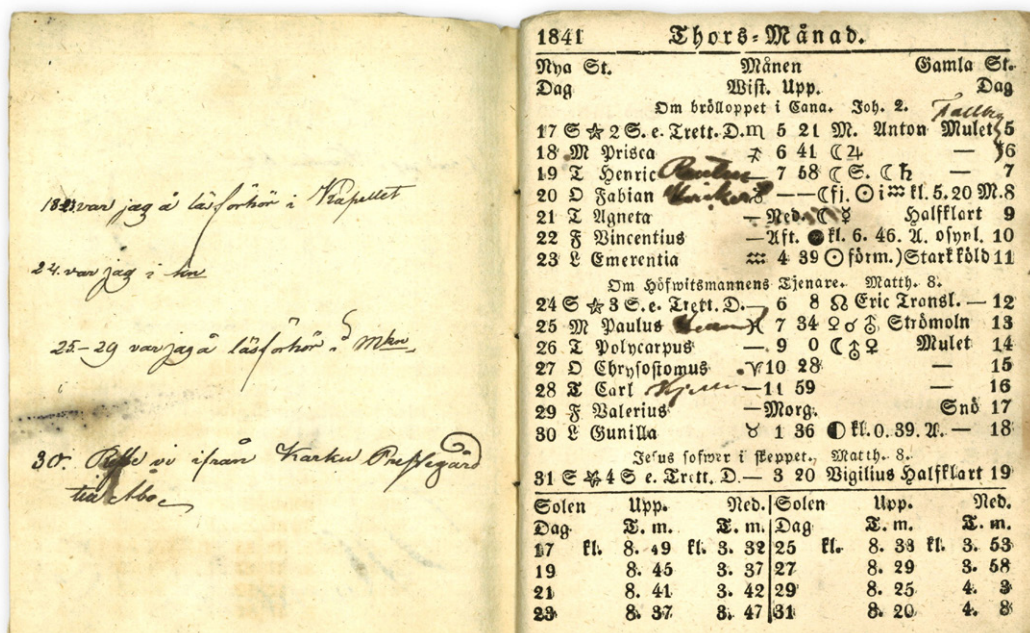 18-23 var jag å läsförhör i Kapellet
24. var jag i
25-29 var jag å läsförhör i
30. Reste vi ifrån Karku Prestegård
till Åbo
1841 Thors-Månad.
Nya St. Månen Gamla St.
Dag Wist. Upp. Dag
Om bröllopet i Cana. Joh. 2.
17 S ☆ 2 S. e. Trett. D. ♏ 5 21 M. Anton Mulet 5
18 M Prisca ♐ 6 41 ☾ ♃ — 6
19 T Henric — 7 58 ☾ S. ☾ ♄ — 7
20 O Fabian — — ☾ fj. ☉ i ♒ kl. 5. 20 M. 8
21 T Agneta — Ned. ☾ ☿ Halfklart 9
22 F Vincentius — Aft. ● kl. 6. 46. A. osynl. 10
23 L Emerentia ♒ 4 39 ☉ förm.) Stark köld 11
Om Höfwitsmannens Tjenare. Matth. 8.
24 S ☆ 3 S. e. Trett. D. — 6 8 ☊ Eric Transl. — 12
25 M Paulus ♓ 7 34 ♀ ♂ ♅ Strömoln 13
26 T Polycarpus — 9 0 ☾ ♅ ♀ Mulet 14
27 O Chrysostomus ♈ 10 28 — 15
28 T Carl — 11 59 — 16
29 F Valerius — Morg. Snö 17
30 L Gunilla ♉ 1 36 ◐ kl. 0. 39. A. — 18
Jesus sofwer i skeppet. Matth. 8.
31 S ☆ 4 S e. Trett. D. — 3 20 Vigilius Halfklart 19
Solen Upp. Ned. Solen Upp. Ned.
Dag T. m. T. m. Dag T. m. T. m.
17 kl. 8. 49 kl. 3. 32 25 kl. 8. 33 kl. 3. 53
19 8. 45 3. 37 27 8. 29 3. 58
21 8. 41 3. 42 29 8. 25 4. 3
23 8. 37 3. 47 31 8. 20 4. 8